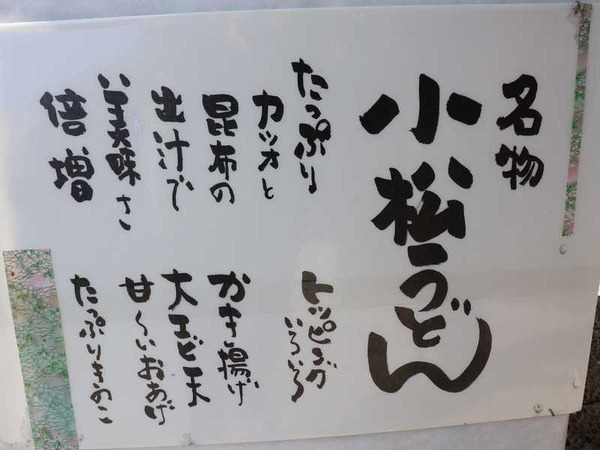 名物
小松うどん
たっぷり
カツオと
昆布の
出汁で
い美味さ
倍増
トッピング
いろいろ
かき揚げ
大エビ天
甘〜いおあげ
たっぷりきのこ